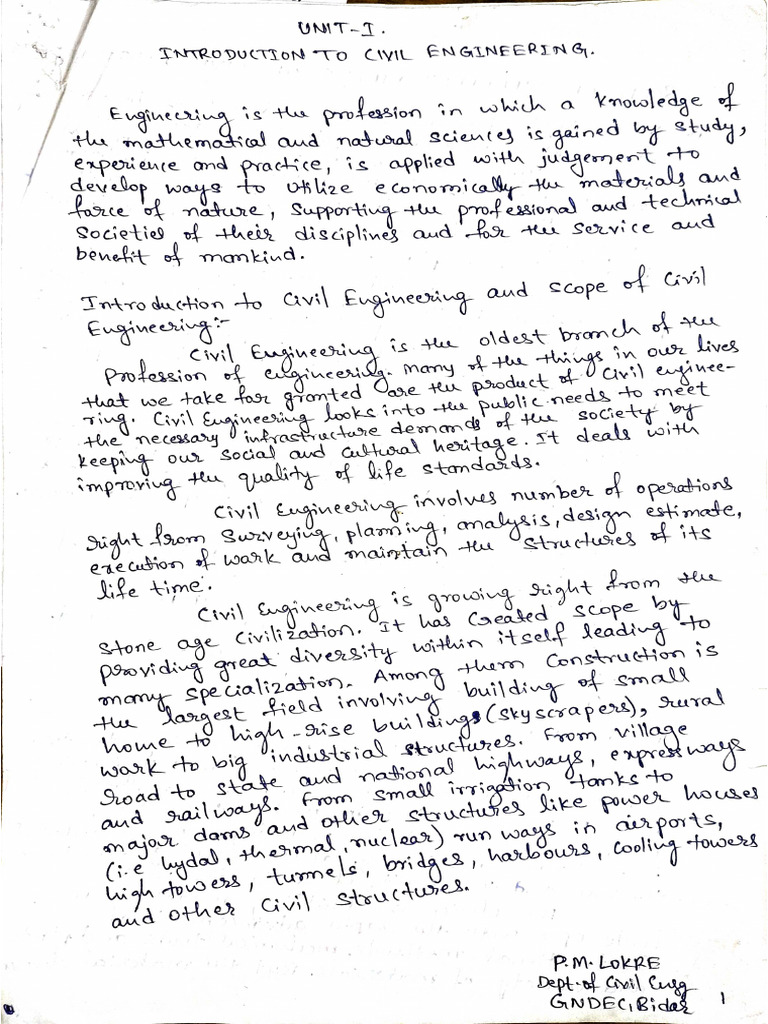 UNIT-I.
INTRODUCTION TO CIVIL ENGINEERING.
Engineering is the profession in which a knowledge of
the mathematical and natural sciences is gained by study,
experience and practice, is applied with judgement to
develop ways to utilize economically the materials and
force of nature, supporting the professional and technical
societies of their disciplines and for the service and
benefit of mankind.
Introduction to Civil Engineering and scope of Civil
Engineering:-
Civil Engineering is the oldest branch of the
Profession of engineering. Many of the things in our lives
that we take for granted are the product of Civil enginee-
ring. Civil Engineering looks into the public needs to meet
the necessary infrastructure demands of the society by
keeping our social and cultural heritage. It deals with
improving the quality of life standards.
Civil Engineering involves number of operations
right from surveying, planning, analysis, design estimate,
execution of work and maintain the structures of its
life time.
Civil Engineering is growing right from the
stone age civilization. It has created scope by
providing great diversity within itself leading to
many specialization. Among them construction is
the largest field involving building of small
home to high-rise buildings (skyscrapers), rural
work to big industrial structures. From village
road to state and national highways, expressways
and railways. From small irrigation tanks to
major dams and other structures like power houses
(i.e hydal, thermal, nuclear) run ways in airports,
high towers, tunnels, bridges, harbours, cooling towers
and other civil structures.
P.M. LOKRE
Dept. of Civil Engg
GNDEC, Bidar
1